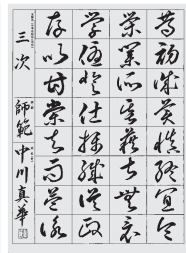 篤初誠美慎終宜令
榮業所基籍甚無竟
學優登仕攝職從政
存以甘棠去而益詠
三次
師範 中川真華